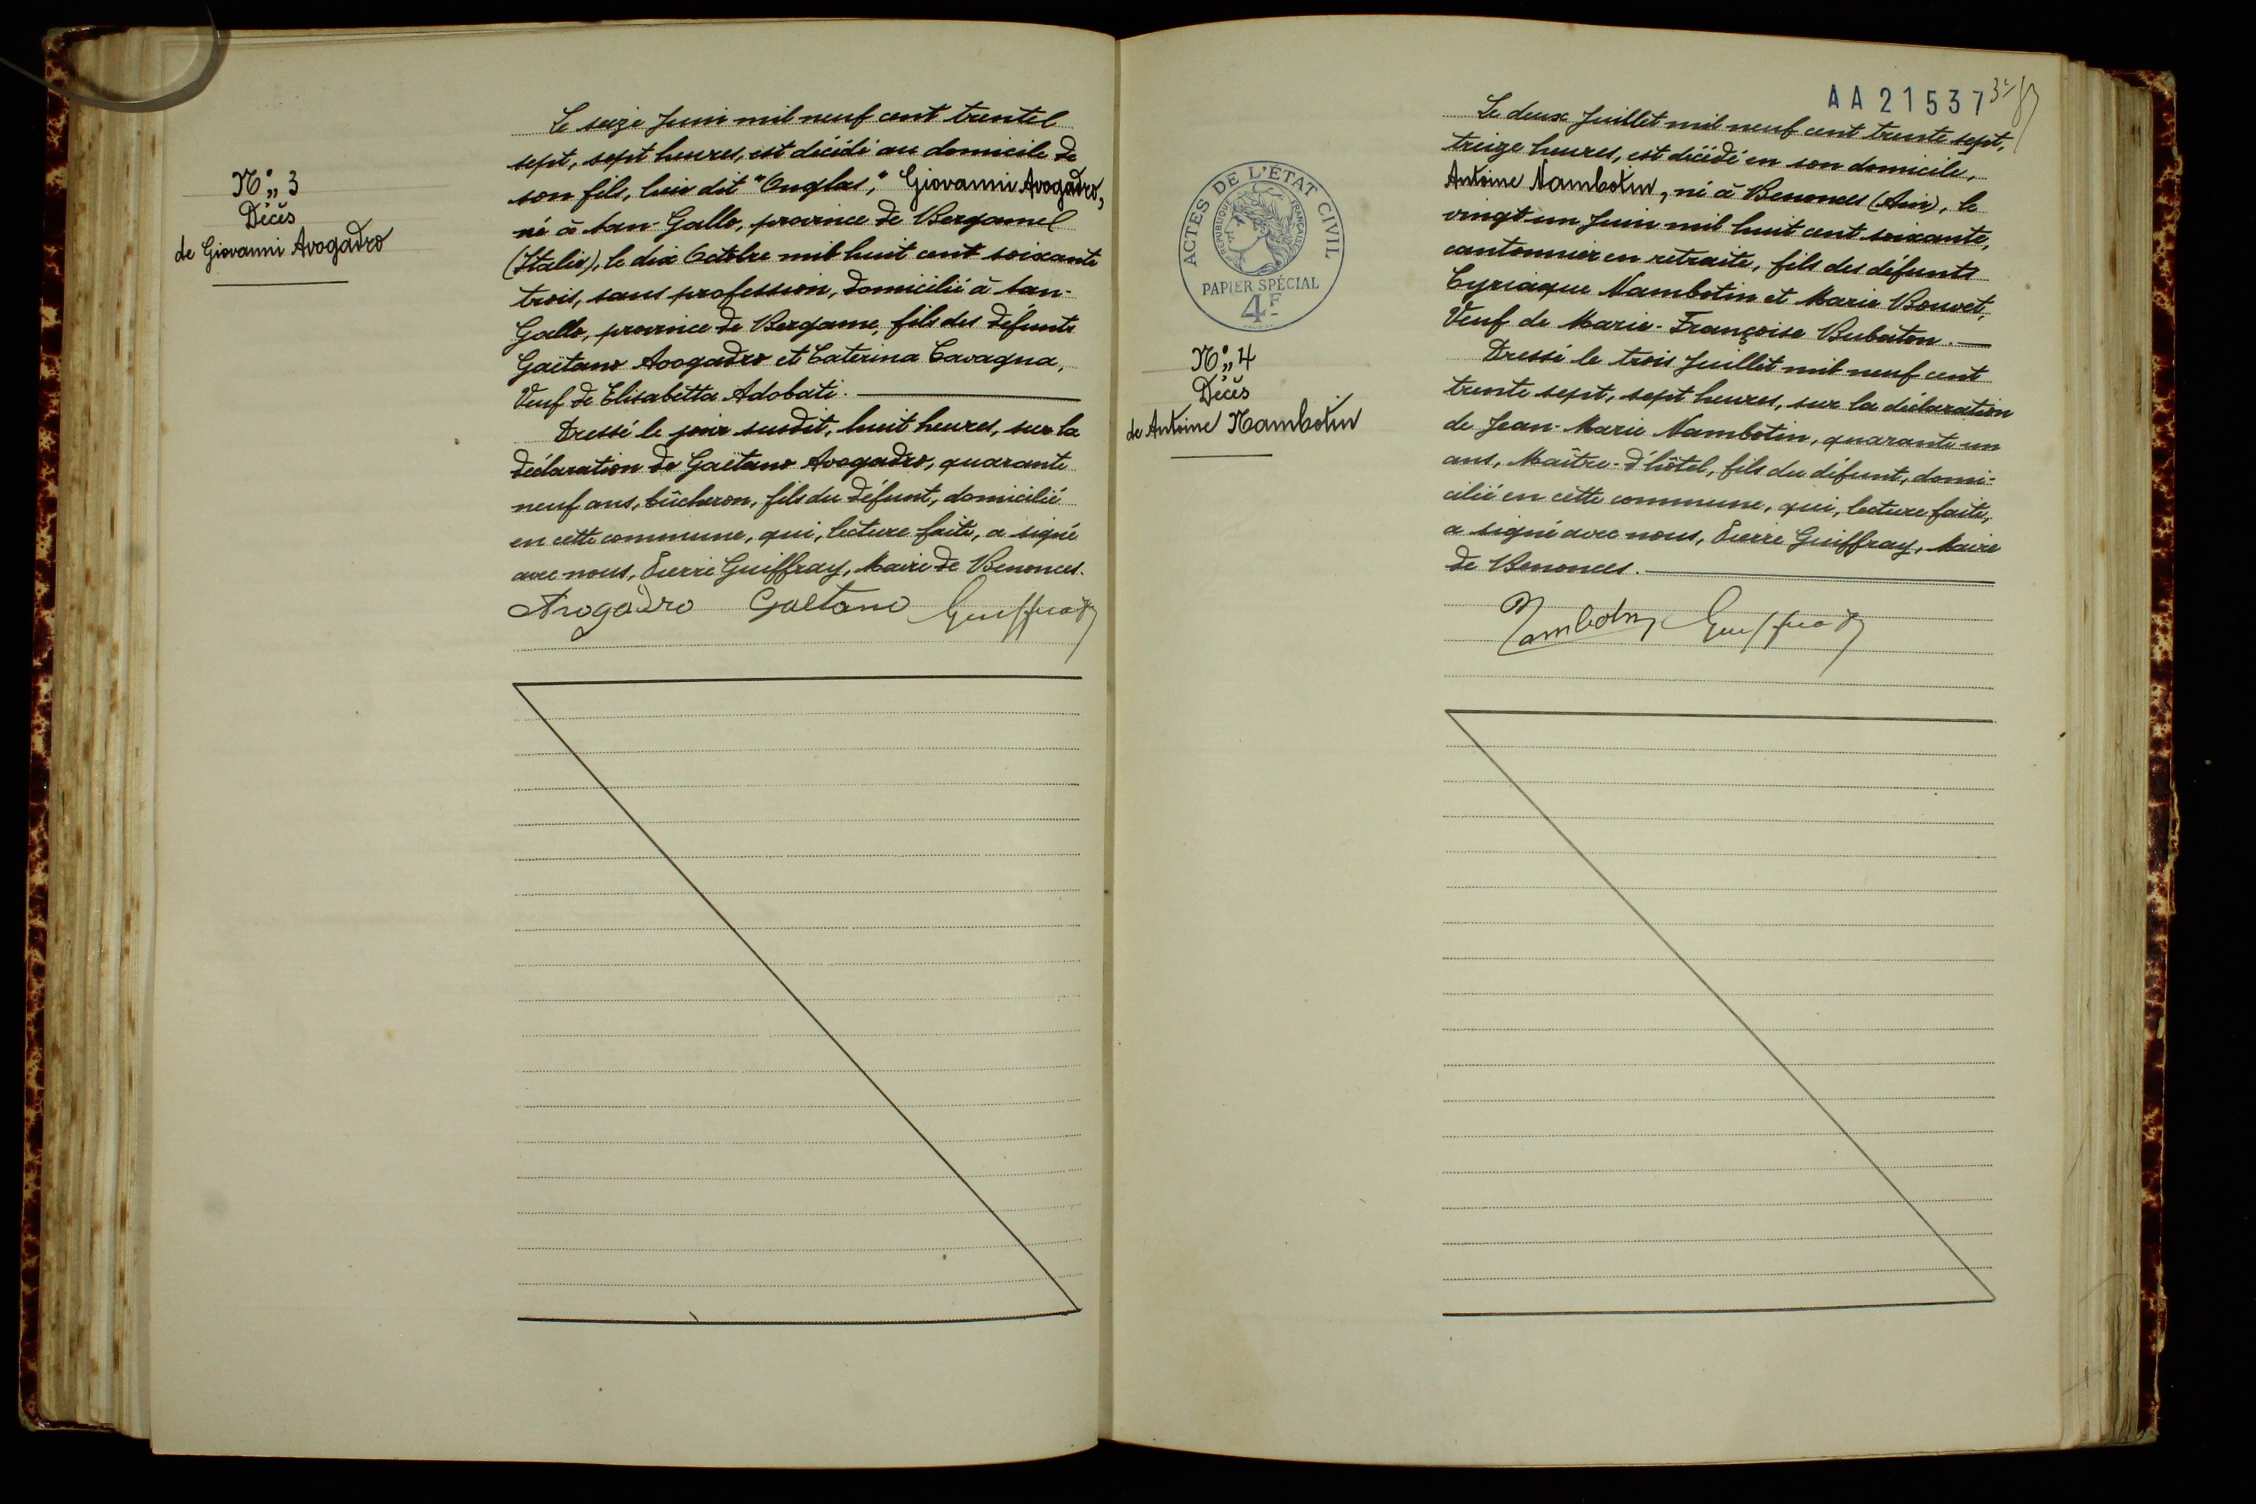 N° 3
Décès
de Giovanni Avogadro
Le seize Juin mil neuf cent trente
sept, sept heures, est décédé au domicile de
son fils, lieu dit "Onglas", Giovanni Avogadro,
né à San-Gallo, province de Bergame
(Italie), le dix Octobre mil huit cent soixante
trois, sans profession, domicilié à San-
Gallo, province de Bergame, fils des défunts
Gaëtano Avogadro et Caterina Cavagna,
Veuf de Elisabetta Adobati.
Dressé le jour susdit, huit heures, sur la
déclaration de Gaëtano Avogadro, quarante
neuf ans, bûcheron, fils du défunt, domicilié
en cette commune, qui, lecture faite, a signé
avec nous, Pierre Guiffray, Maire de Benonces.
Avogadro Gaetano Guiffray
AA 21537
ACTES DE L'ÉTAT CIVIL
RÉPUBLIQUE FRANÇAISE
PAPIER SPÉCIAL
4F
N° 4
Décès
de Antoine Nambotin
Le deux Juillet mil neuf cent trente sept,
treize heures, est décédé en son domicile,
Antoine Nambotin, né à Benonces (Ain), le
vingt un Juin mil huit cent soixante,
cantonnier en retraite, fils des défunts
Cyriaque Nambotin et Marie Bouvet,
Veuf de Marie-Françoise Bubaton.
Dressé le trois Juillet mil neuf cent
trente sept, sept heures, sur la déclaration
de Jean-Marie Nambotin, quarante un
ans, Maître-d'hôtel, fils du défunt, domi-
cilié en cette commune, qui, lecture faite,
a signé avec nous, Pierre Guiffray, Maire
de Benonces.
Nambotin Guiffray